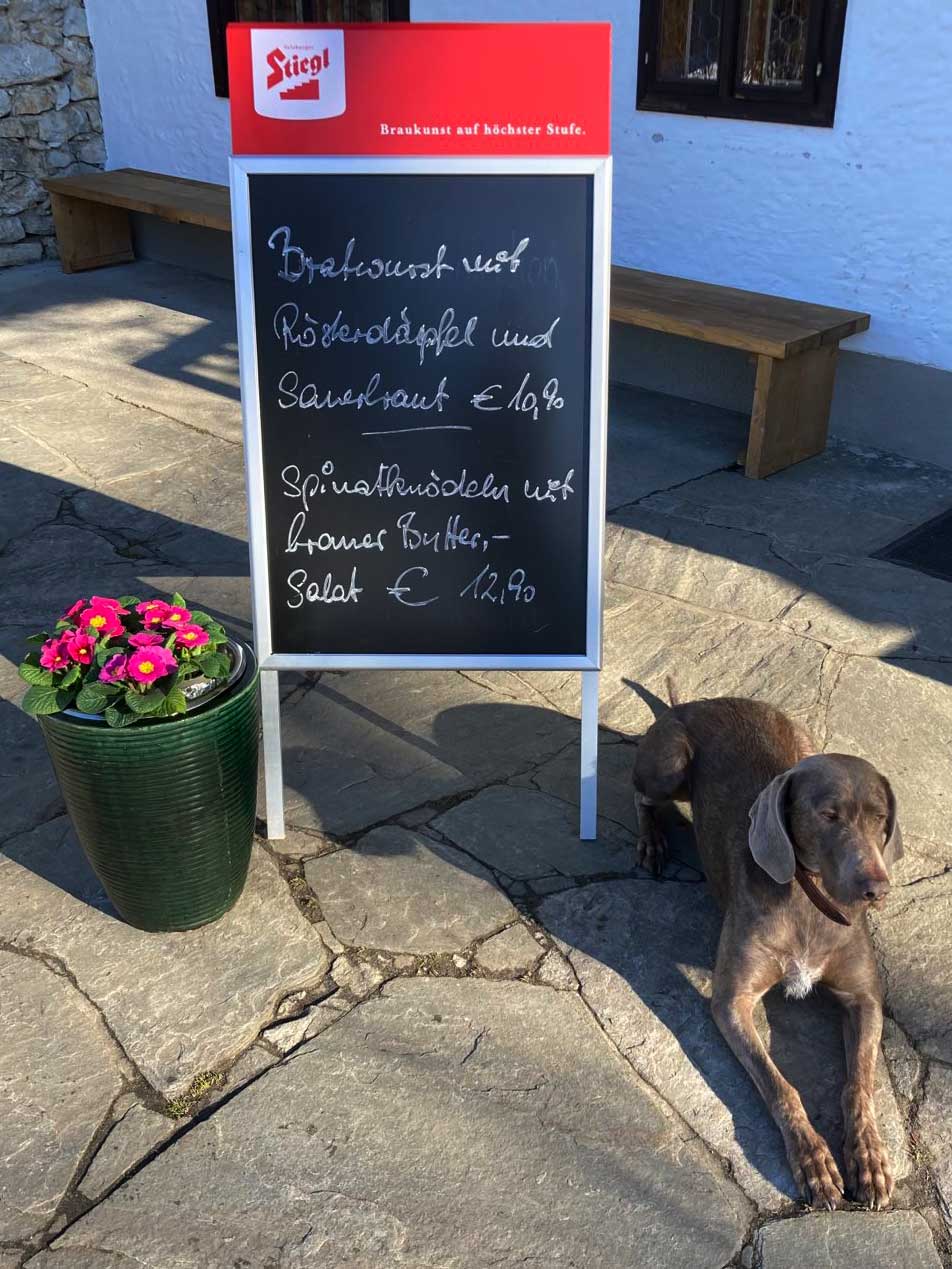 Salzburger
Stiegl
Braukunst auf höchster Stufe.
Bratwurst mit
Rösterdäpfel und
Sauerkraut € 10,90
Spinatknödeln mit
brauner Butter,-
Salat € 12,90